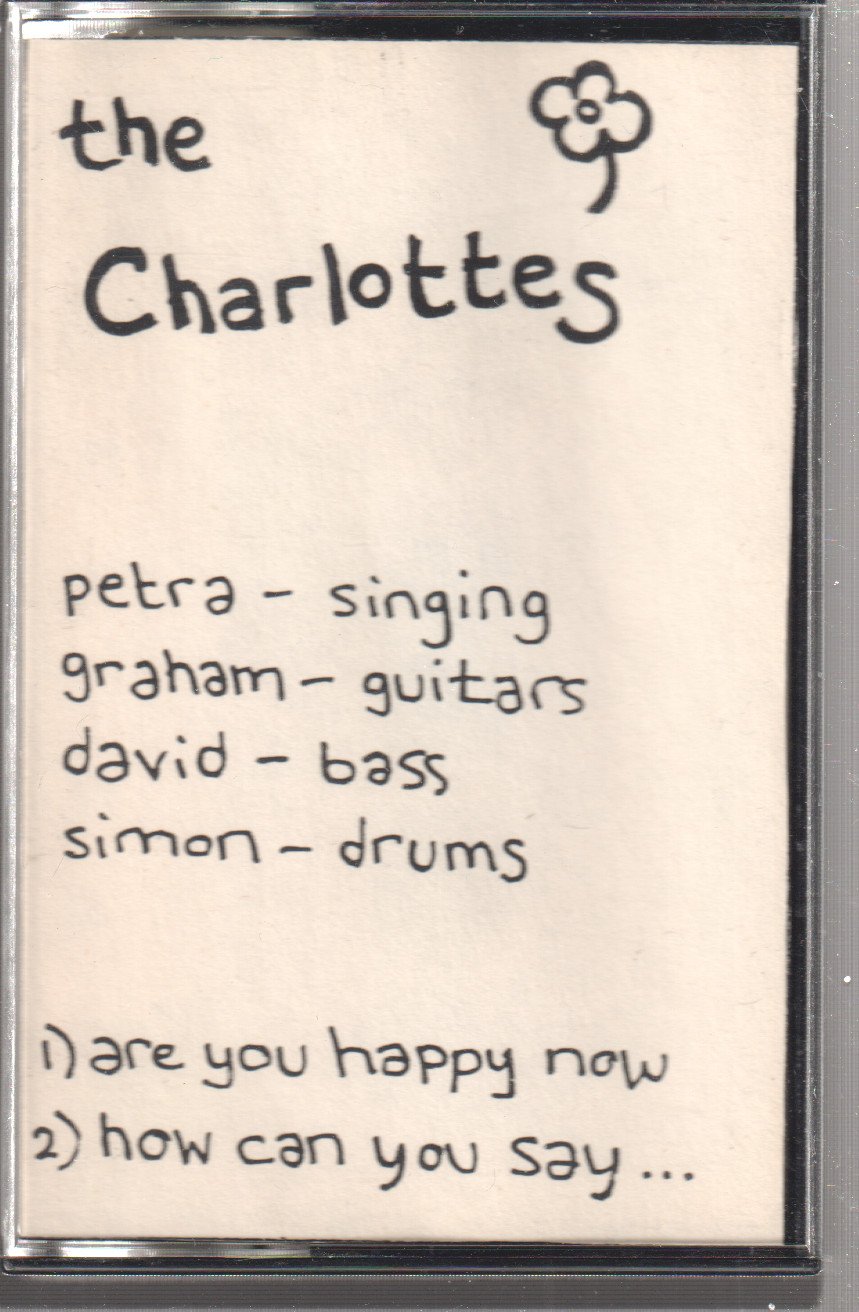 the
Charlottes
petra - singing
graham - guitars
david - bass
simon - drums
1) are you happy now
2) how can you say...